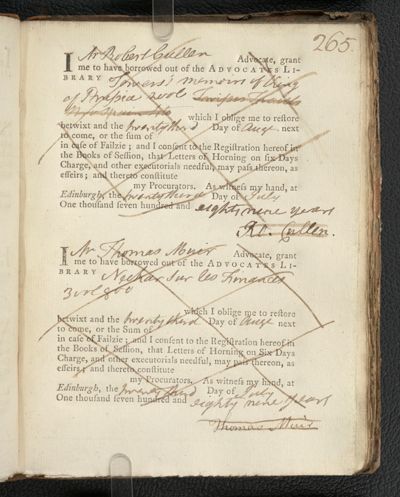 265.
I Mr Robert Cullen Advocate, grant
me to have borrowed out of the ADVOCATES LI-
BRARY Towers's memoirs of King
of Prussia 2 vols
which I oblige me to restore
betwixt and the twenty third Day of Augt next
to come, or the sum of
in case of Failzie; and I consent to the Registration hereof in
the Books of Session, that Letters of Horning on six Days
Charge, and other executorials needful, may pass thereon, as
effeirs; and thereto constitute
my Procurators. As witness my hand, at
Edinburgh, the twenty third Day of July
One thousand seven hundred and eighty nine years
Rt. Cullen.
I Mr Thomas Muir Advocate, grant
me to have borrowed out of the ADVOCATES LI-
BRARY Neckar Sur les Finances
3 vol 8vo
which I oblige me to restore
betwixt and the twenty third Day of Augt next
to come, or the Sum of
in case of Failzie; and I consent to the Registration hereof in
the Books of Session, that Letters of Horning on Six Days
Charge, and other executorials needful, may pass thereon, as
effeirs; and thereto constitute
my Procurators. As witness my hand, at
Edinburgh, the twenty third Day of July
One thousand seven hundred and eighty nine years
Thomas Muir